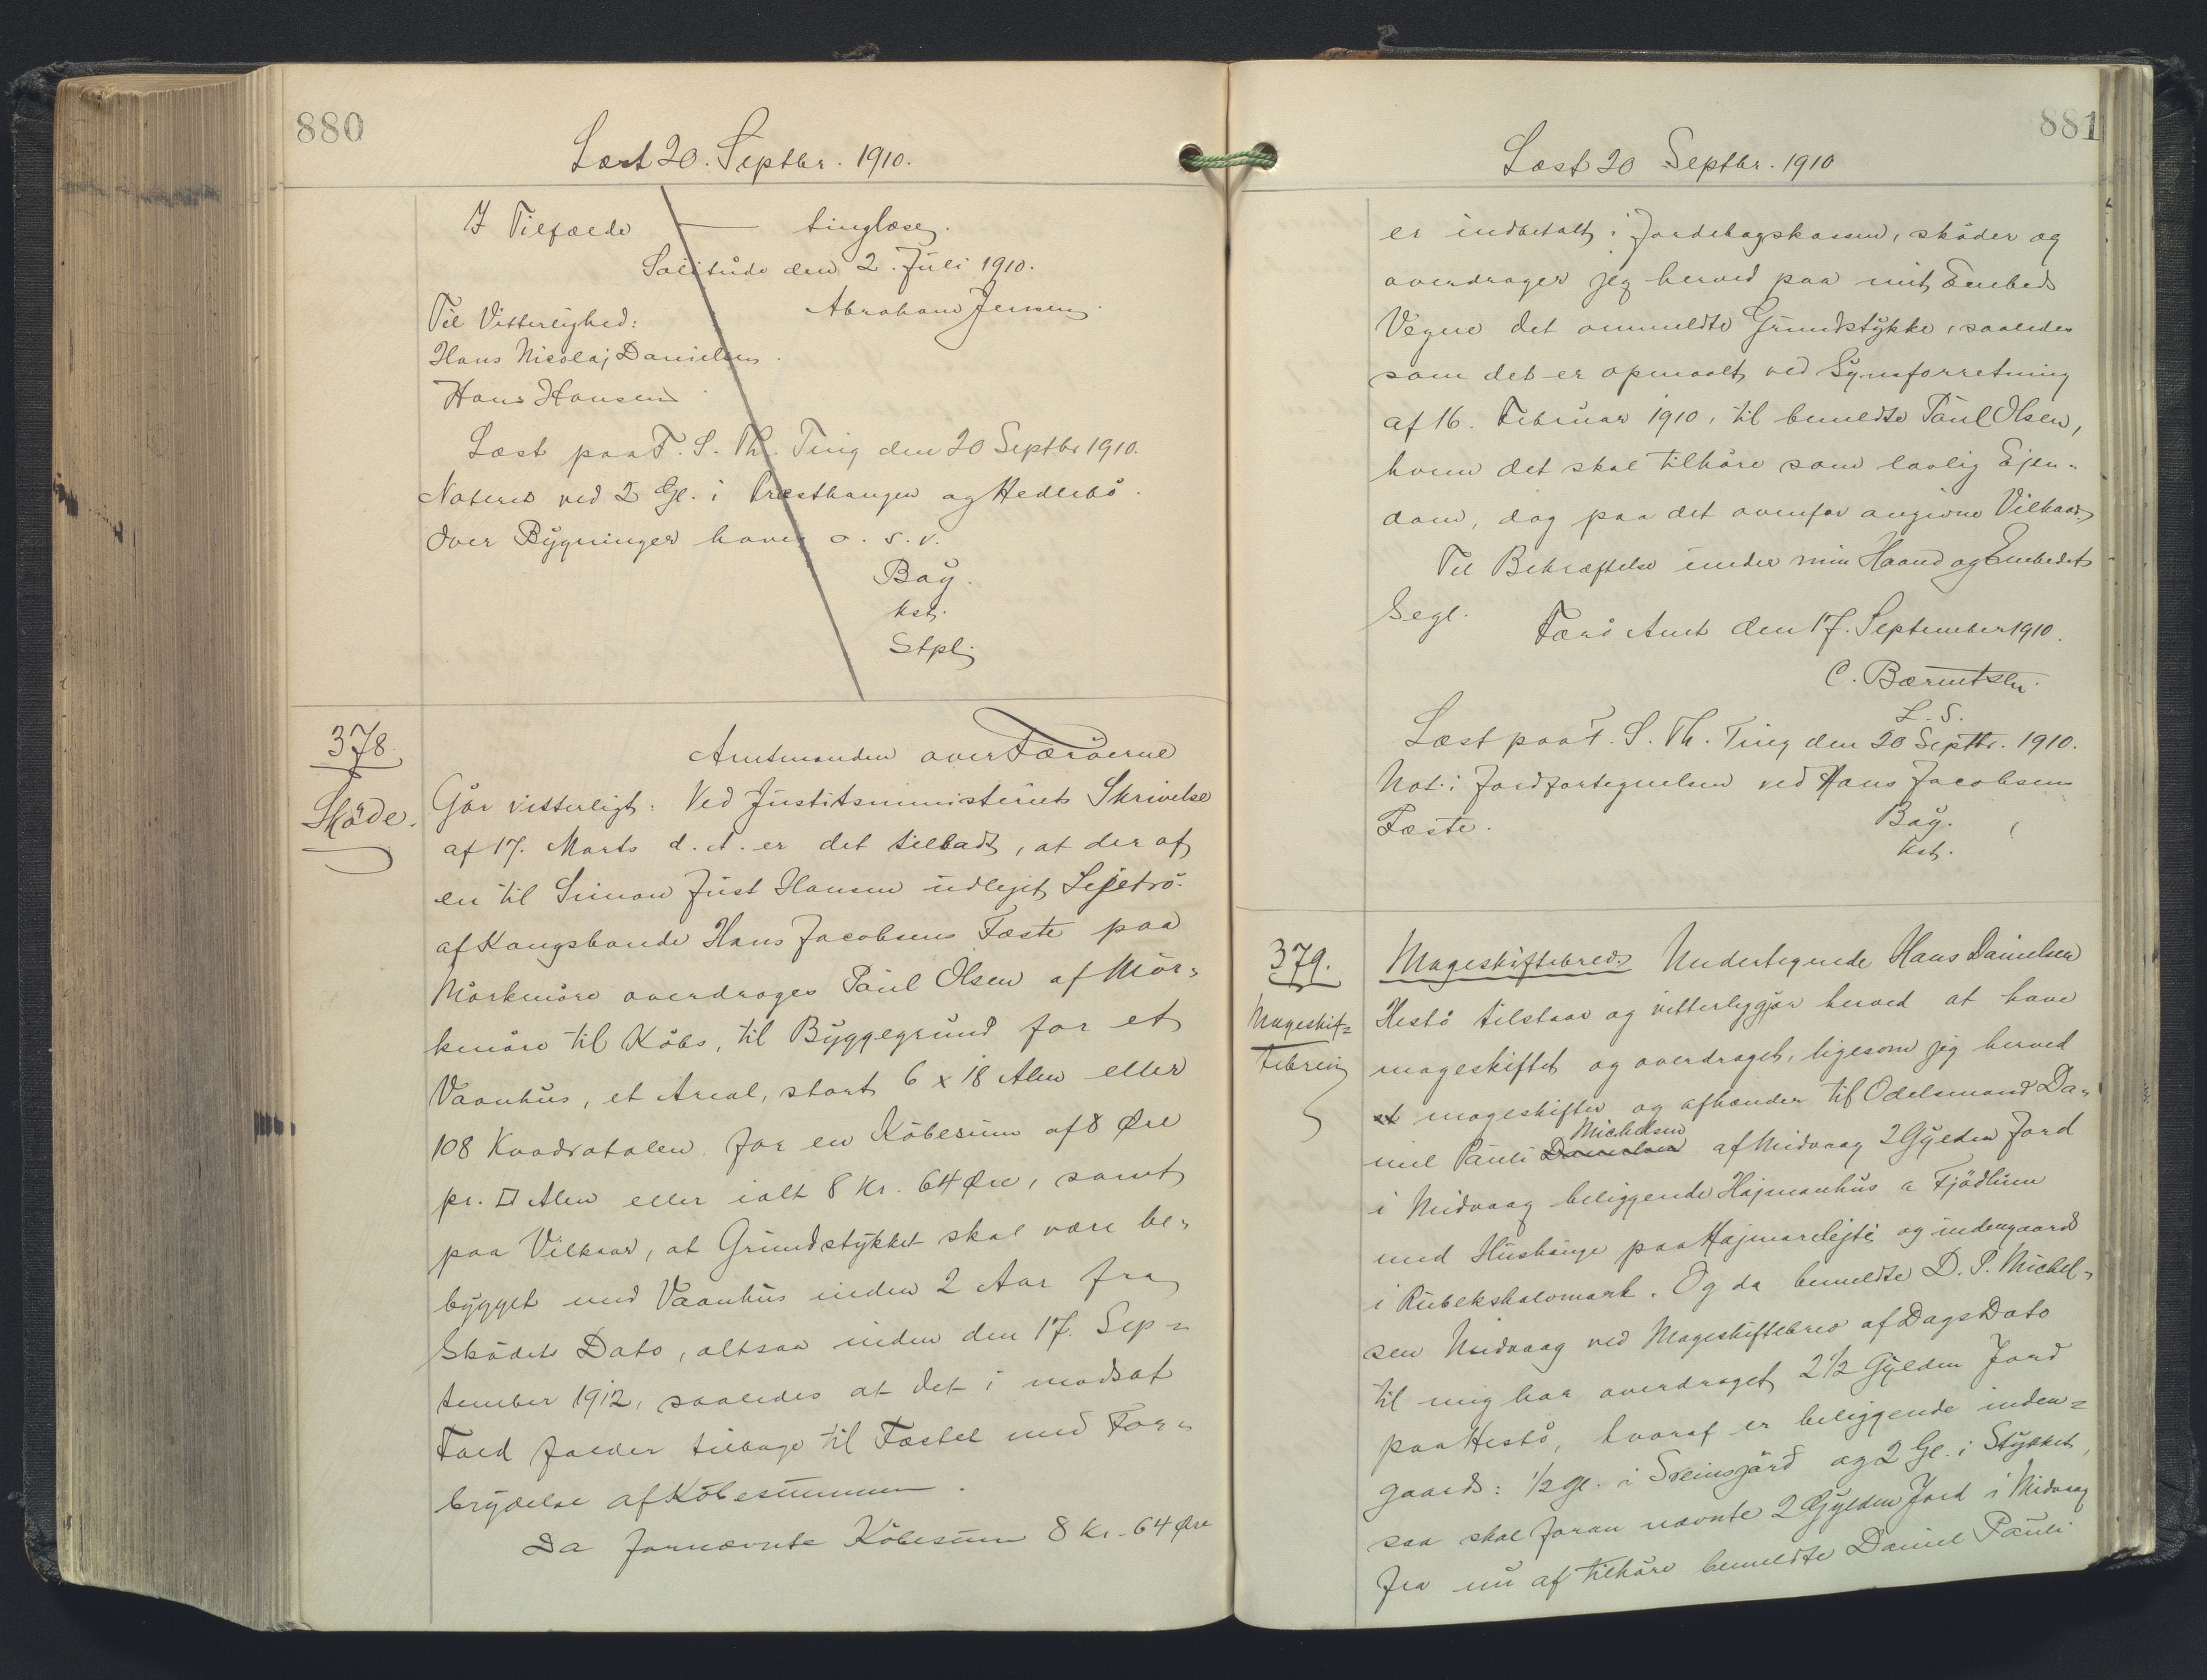 880
Læst 20. Septbr. 1910.
I Tilfælde — tinglæse.
Solitude den 2. Juli 1910.
Abraham Jensen.
Til Vitterlighed:
Hans Nicolaj Danielsen.
Hans Hansen
Læst paa F. S. Th. Ting den 20 Septbr 1910.
Noteres ved 2 Gl. i Præsthaugen og Hedlebö.
Over Bygninger haves o. s. v.
Bay.
kst.
Stpl.
378.
Sköde.
Amtmanden over Færöerne
Gör vitterligt: Ved Justitsministeriets Skrivelse
af 17. Marts d. A. er det tilladt, at der af
en til Simon Just Hansen udlejet Lejetrö
af Kongsbonde Hans Jacobsens Fæste paa
Mörkmöre overdrages Paul Olsen af Mör-
kmöre til Köbs, til Byggegrund for et
Vaanhus, et Areal, stort 6 x 18 Alen eller
108 Kvadratalen for en Köbesum af 8 Øre
pr. □ Alen eller ialt 8 Kr. 64 Øre, samt
paa Vilkaar, at Grundstykket skal være be-
bygget med Vaanhus inden 2 Aar fra
Sködets Dato, altsaa inden den 17. Sep-
tember 1912, saaledes at det i modsat
Fald falder tilbage til Fæstet med For-
brydelse af Köbesummen.
Da fornævnte Köbesum 8 Kr. 64 Øre
881
Læst 20 Septbr. 1910
er indbetalt i Jordebogskassen, sköder og
overdrager jeg herved paa mit Embeds
Vegne det ommeldte Grundstykke, saaledes
som det er opmaalt ved Synsforretning
af 16. Februar 1910, til bemeldte Paul Olsen,
hvem det skal tilhöre som lovlig Ejen-
dom, dog paa det ovenfor angivne Vilkaar.
Til Bekræftelse under min Haand og Embedets
Segl.
Færö Amt den 17. September 1910.
C. Bærentsen.
L. S.
Læst paa F. S. Th. Ting den 20 Septbr. 1910.
Not. i Jordfortegnelsen ved Hans Jacobsens
Fæste.
Bay.
kst.
379.
Mageskif-
tebrev
Mageskiftebrev. Undertegnede Hans Danielsen
Hestö tilstaar og vitterliggjör herved at have
mageskiftet og overdraget, ligesom jeg herved
et mageskifter og afhænder til Odelsmand Da-
niel Pauli Danielsen Michelsen af Midvaag 2 Gylden Jord
i Midvaag beliggende Hajmanhus a Fjödlum
med Hushauge paa Hajmarilejti og indengaards
i Ribekshalvmark. Og da bemeldte D. P. Michel-
sen Midvaag ved Mageskiftebrev af Dags Dato
til mig har overdraget 2 1/2 Gylden Jord
paa Hestö, hvoraf er beliggende inden-
gaards: 1/2 Gl. i Sveinsgård og 2 Gl. i Stykket,
saa skal foran nævnte 2 Gylden Jord i Midvaag
fra nu af tilhöre bemeldte Daniel Pauli